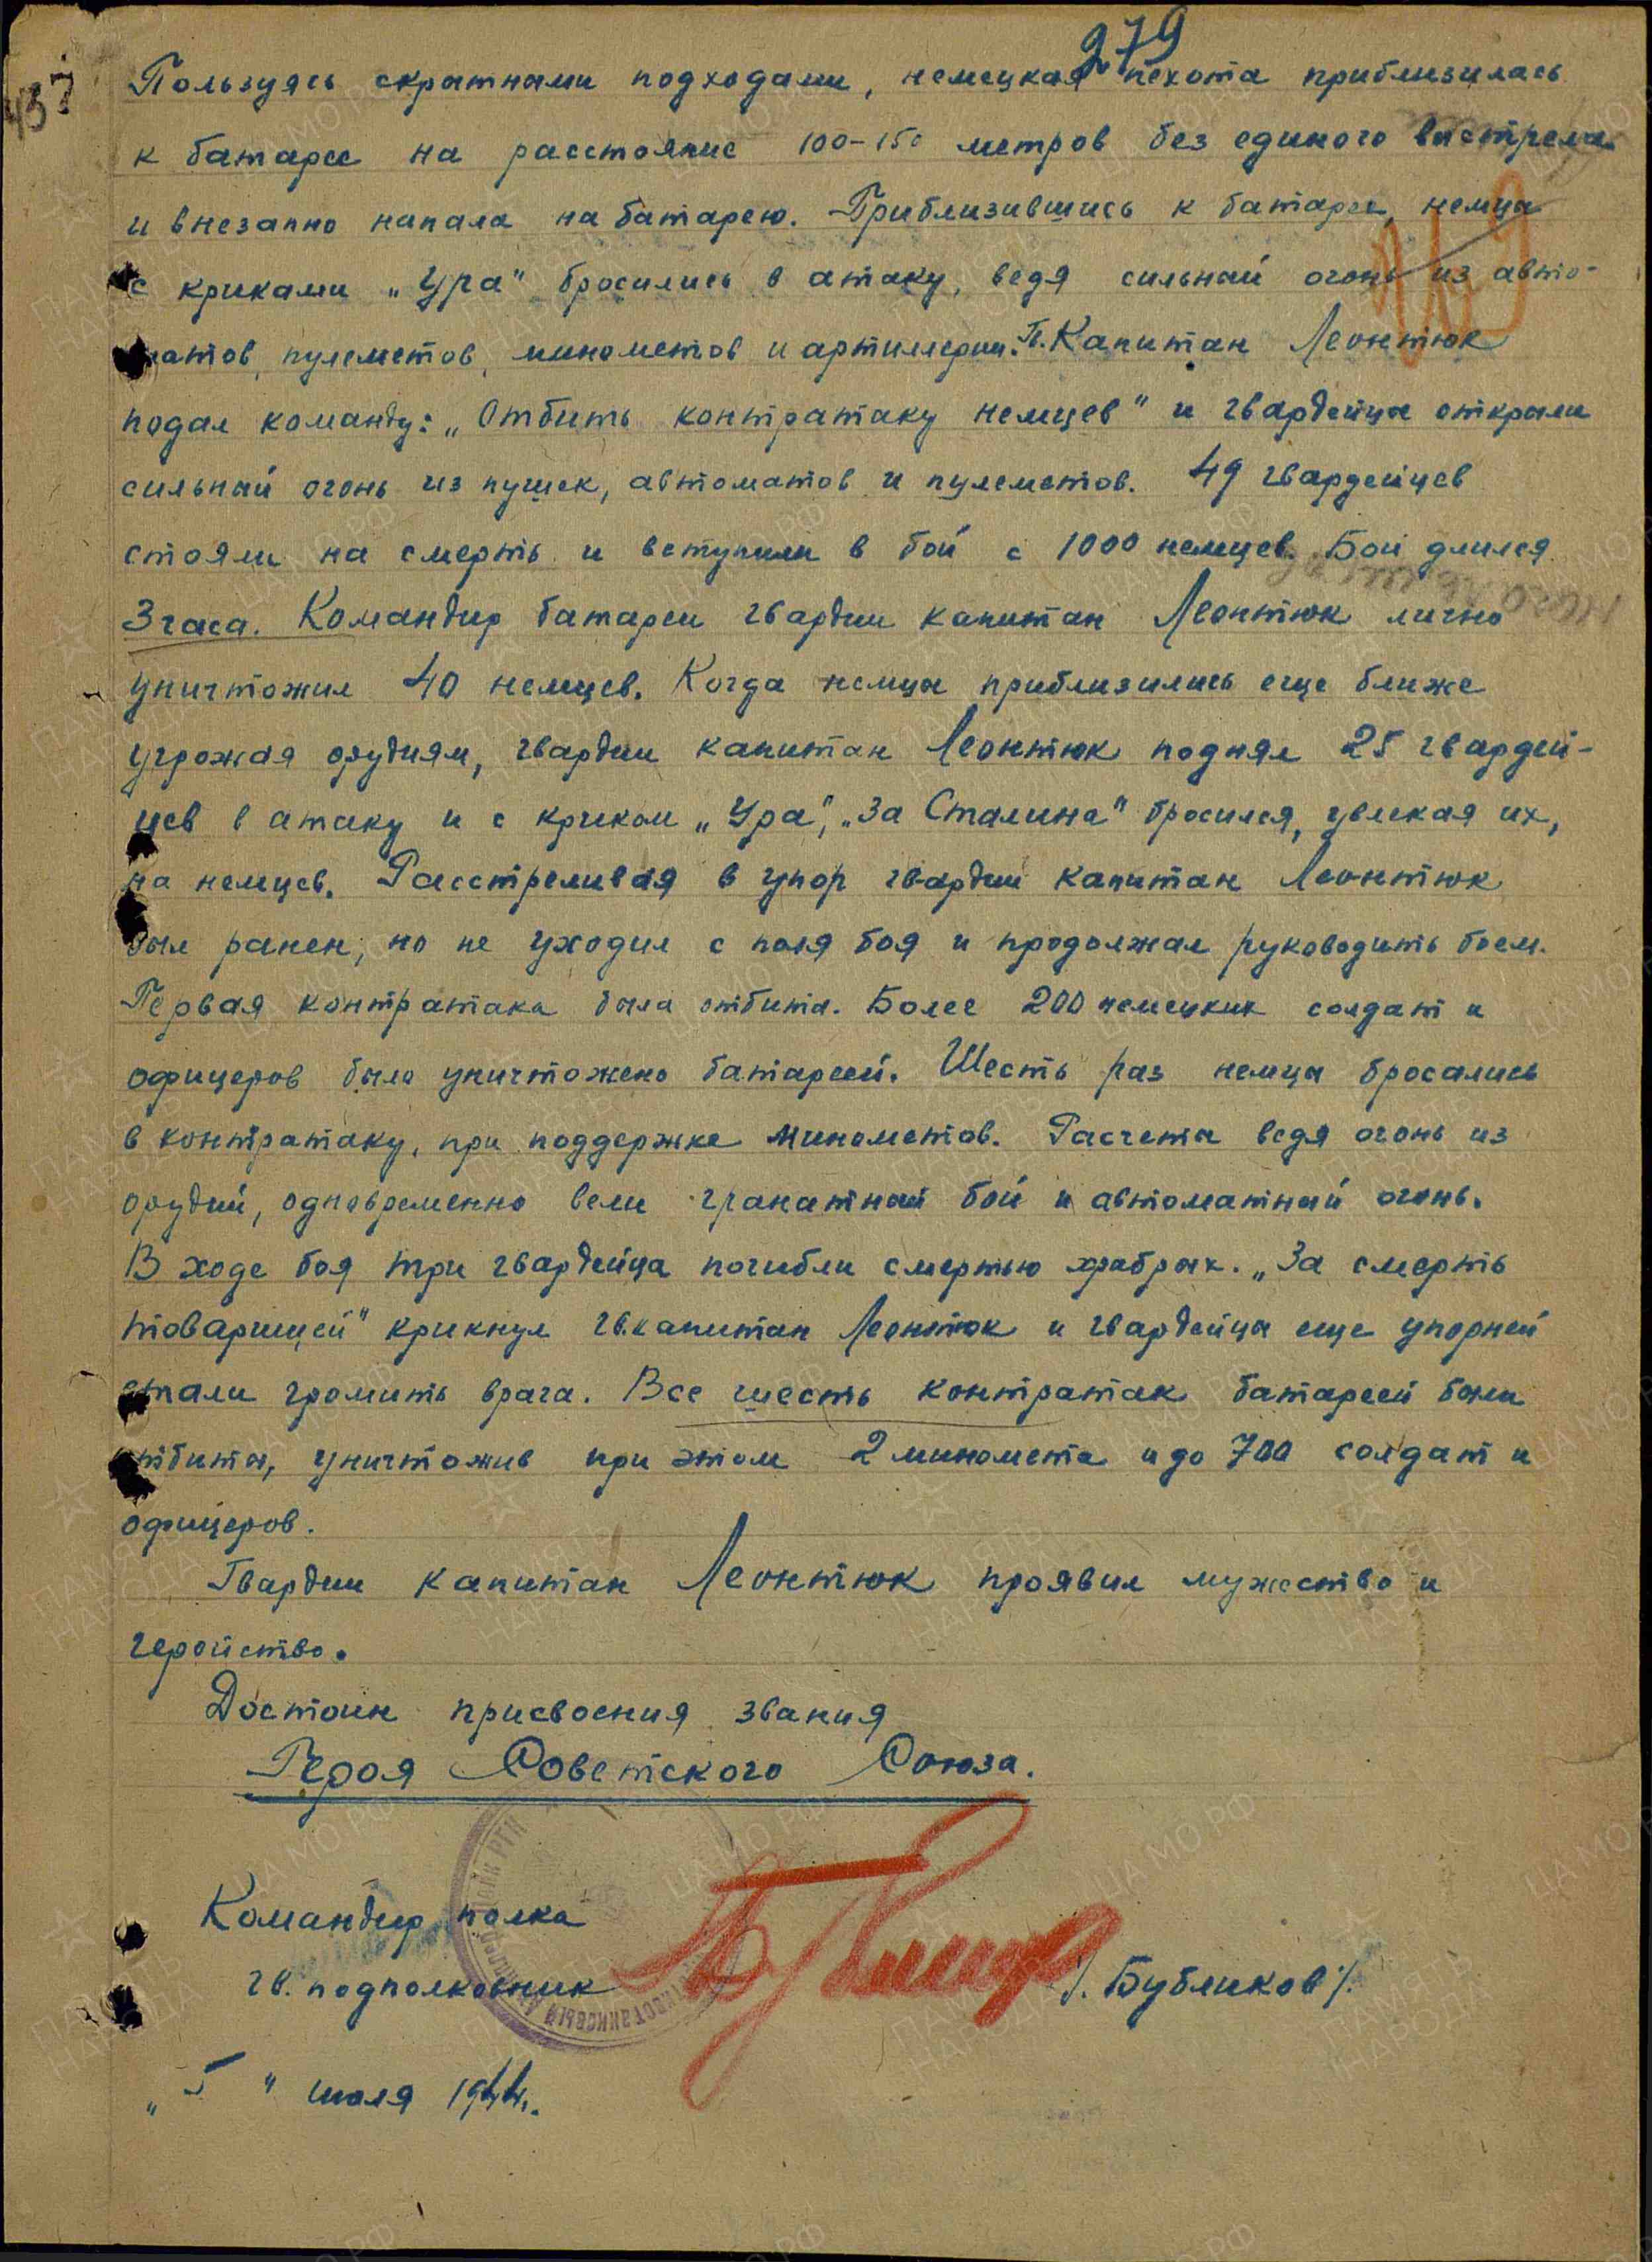 279
437
Пользуясь скрытными подходами, немецкая пехота приблизилась
к батарее на расстояние 100-150 метров без единого выстрела
и внезапно напала на батарею. Приблизившись к батарее, немцы
с криками „Ура" бросились в атаку, ведя сильный огонь из авто-
матов, пулеметов, минометов и артиллерии. Гв. Капитан Леонтюк
подал команду: „Отбить контратаку немцев" и гвардейцы открыли
сильный огонь из пушек, автоматов и пулеметов. 49 гвардейцев
стояли на смерть и вступили в бой с 1000 немцев. Бой длился
3 часа. Командир батареи гвардии капитан Леонтюк лично
уничтожил 40 немцев. Когда немцы приблизились еще ближе
угрожая орудиям, гвардии капитан Леонтюк поднял 25 гвардей-
цев в атаку и с криком „Ура", „За Сталина" бросился, увлекая их,
на немцев. Расстреливая в упор гвардии капитан Леонтюк
был ранен, но не уходил с поля боя и продолжал руководить боем.
Первая контратака была отбита. Более 200 немецких солдат и
офицеров было уничтожено батареей. Шесть раз немцы бросались
в контратаку, при поддержке минометов. Расчеты ведя огонь из
орудий, одновременно вели гранатный бой и автоматный огонь.
В ходе боя три гвардейца погибли смертью храбрых. „За смерть
товарищей" крикнул гв. капитан Леонтюк и гвардейцы еще упорней
стали громить врага. Все шесть контратак батареей были
отбиты, уничтожив при этом 2 миномета и до 700 солдат и
офицеров.
Гвардии капитан Леонтюк проявил мужество и
геройство.
Достоин присвоения звания
Героя Советского Союза.
Командир полка
гв. подполковник /. Бубликов /.
„ 5 " июля 1944.
ПАМЯТЬ НАРОДА
ЦА МО РФ